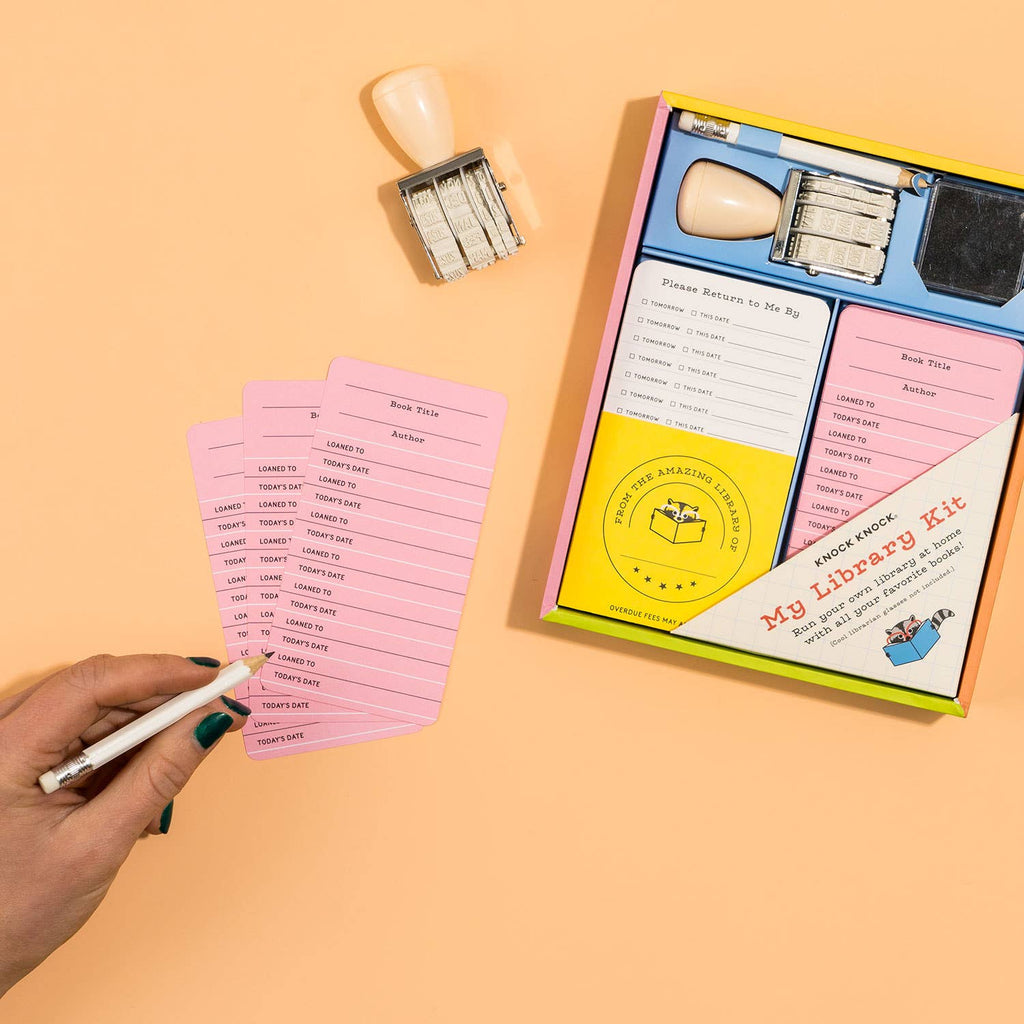 Book Title
Author
LOANED TO
TODAY'S DATE
LOANED TO
TODAY'S DATE
LOANED TO
TODAY'S DATE
LOANED TO
TODAY'S DATE
LOANED TO
TODAY'S DATE
LOANED TO
TODAY'S DATE
LOANED TO
TODAY'S DATE
LOANED TO
TODAY'S DATE
LOANED TO
TODAY'S DATE
LOANED TO
TODAY'S DATE
LOANED TO
TODAY'S DATE
Please Return to Me By
TOMORROW THIS DATE
TOMORROW THIS DATE
TOMORROW THIS DATE
TOMORROW THIS DATE
TOMORROW THIS DATE
TOMORROW THIS DATE
TOMORROW THIS DATE
FROM THE AMAZING LIBRARY OF
OVERDUE FEES MAY
Book Title
Author
LOANED TO
TODAY'S DATE
LOANED TO
TODAY'S DATE
LOANED TO
TODAY'S DATE
LOANED TO
TODAY'S
KNOCK KNOCK®
My Library Kit
Run your own library at home
with all your favorite books!
(Cool librarian glasses not included.)